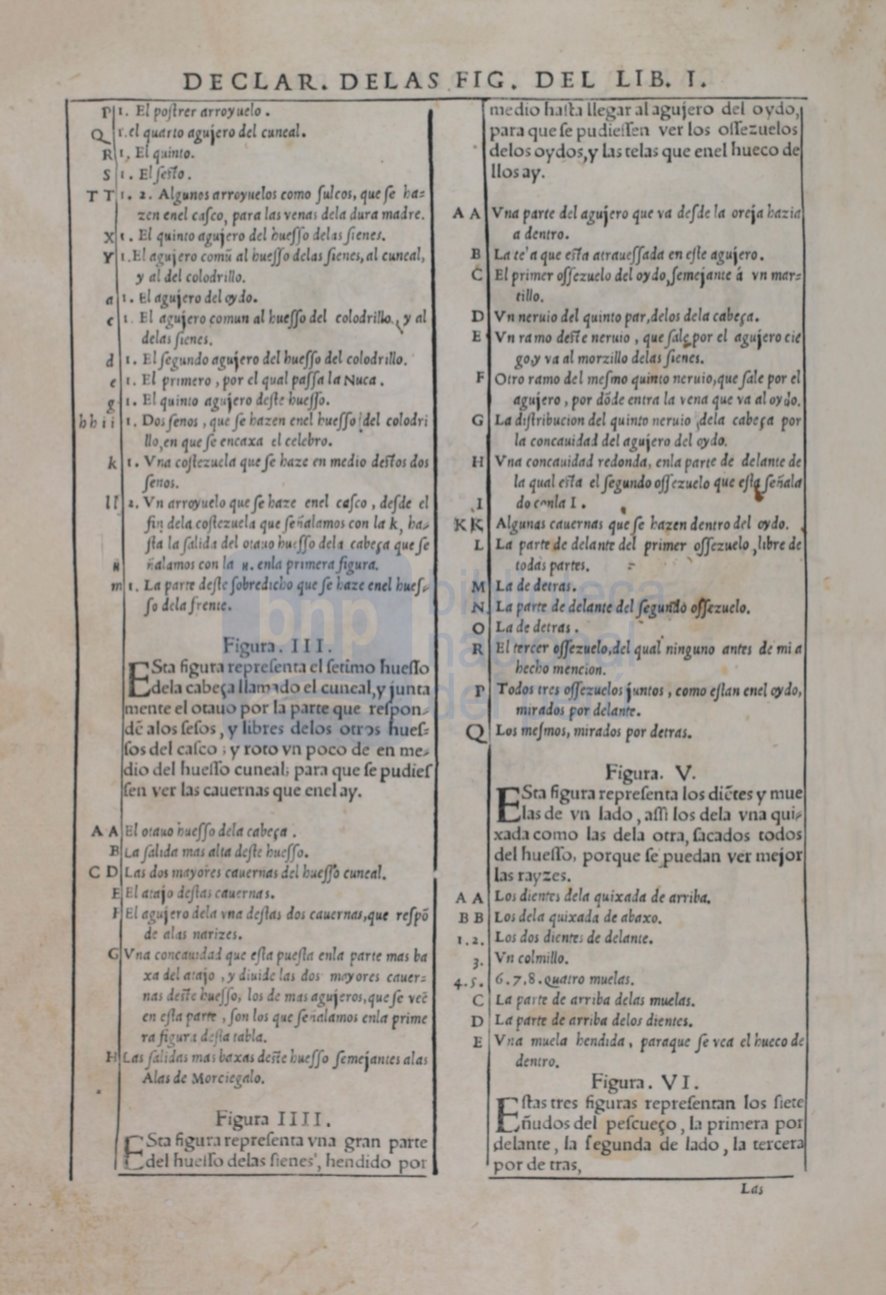 DECLAR. DELAS FIG. DEL LIB. I.
P 1. El poſtrer arroyuelo.
Q 1.el quarto agujero del cuneal.
R 1, El quinto.
S 1. El ſeſto.
T T 1. 2. Algunos arroyuelos como ſulcos, que ſe ha-
zen enel caſco, para las venas dela dura madre.
X 1. El quinto agujero del hueſſo delas ſienes.
Y 1.El agujero comũ al hueſſo delas ſienes, al cuneal,
y al del colodrillo.
a 1. El agujero del oydo.
c 1. El agujero comun al hueſſo del colodrillo, y al
delas ſienes.
d 1. El ſegundo agujero del hueſſo del colodrillo.
e 1. El primero, por el qual paſſa la Nuca.
g 1. El quinto agujero deſte hueſſo.
h h i i 1. Dos ſenos, que ſe hazen enel hueſſo del colodri
llo, en que ſe encaxa el celebro.
k 1. Vna coſtezuela que ſe haze en medio deſtos dos
ſenos.
l l 2. Vn arroyuelo que ſe haze enel caſco, deſde el
fin dela coſtezuela que ſeñalamos con la k, ha-
ſta la ſalida del otauo hueſſo dela cabeça que ſe
ñalamos con la n. enla primera figura.
m 1. La parte deſte ſobredicho que ſe haze enel hueſ-
ſo dela frente.
Figura. III.
ESta figura repreſenta el ſetimo hueſſo
dela cabeça llamado el cuneal, y junta
mente el otauo por la parte que reſpon-
dẽ alos ſeſos, y libres delos otros hueſ-
ſos del caſco; y roto vn poco de en me-
dio del hueſſo cuneal; para que ſe pudieſ
ſen ver las cauernas que enel ay.
A A El otauo hueſſo dela cabeça.
B La ſalida mas alta deſte hueſſo.
C D Las dos mayores cauernas del hueſſo cuneal.
E El atajo deſtas cauernas.
F El agujero dela vna deſtas dos cauernas, que reſpõ
de alas narizes.
G Vna concauidad que eſta pueſta enla parte mas ba
xa del atajo, y diuide las dos mayores cauer-
nas deſte hueſſo, los de mas agujeros, que ſe veẽ
en eſta parte, ſon los que ſeñalamos enla prime
ra figura deſta tabla.
H Las ſalidas mas baxas deſte hueſſo ſemejantes alas
Alas de Morciegalo.
Figura IIII.
ESta figura repreſenta vna gran parte
del hueſſo delas ſienes, hendido por
medio haſta llegar al agujero del oydo,
para que ſe pudieſſen ver los oſſezuelos
delos oydos, y las telas que enel hueco de
llos ay.
A A Vna parte del agujero que va deſde la oreja hazia
a dentro.
B La tela que eſta atraueſſada en eſte agujero.
C El primer oſſezuelo del oydo, ſemejante á vn mar-
tillo.
D Vn neruio del quinto par, delos dela cabeça.
E Vn ramo deſte neruio, que ſale por el agujero cie
go, y va al morzillo delas ſienes.
F Otro ramo del meſmo quinto neruio, que ſale por el
agujero, por dõde entra la vena que va al oydo.
G La diſtribucion del quinto neruio dela cabeça por
la concauidad del agujero del oydo.
H Vna concauidad redonda, enla parte de delante de
la qual eſta el ſegundo oſſezuelo que eſta ſeñala
I do conla I.
K K Algunas cauernas que ſe hazen dentro del oydo.
L La parte de delante del primer oſſezuelo, libre de
todas partes.
M La de detras.
N La parte de delante del ſegundo oſſezuelo.
O La de detras.
R El tercer oſſezuelo, del qual ninguno antes de mi a
hecho mencion.
P Todos tres oſſezuelos juntos, como eſtan enel oydo,
mirados por delante.
Q Los meſmos, mirados por detras.
Figura. V.
ESta figura repreſenta los diẽtes y mue
las de vn lado, aſſi los dela vna qui-
xada como las dela otra, ſacados todos
del hueſſo, porque ſe puedan ver mejor
las rayzes.
A A Los dientes dela quixada de arriba.
B B Los dela quixada de abaxo.
1. 2. Los dos dientes de delante.
3. Vn colmillo.
4. 5. 6. 7. 8. Quatro muelas.
C La parte de arriba delas muelas.
D La parte de arriba delos dientes.
E Vna muela hendida, paraque ſe vea el hueco de
dentro.
Figura. VI.
Eſtas tres figuras repreſentan los ſiete
ñudos del peſcueço, la primera por
delante, la ſegunda de lado, la tercera
por de tras,
Las
bnp